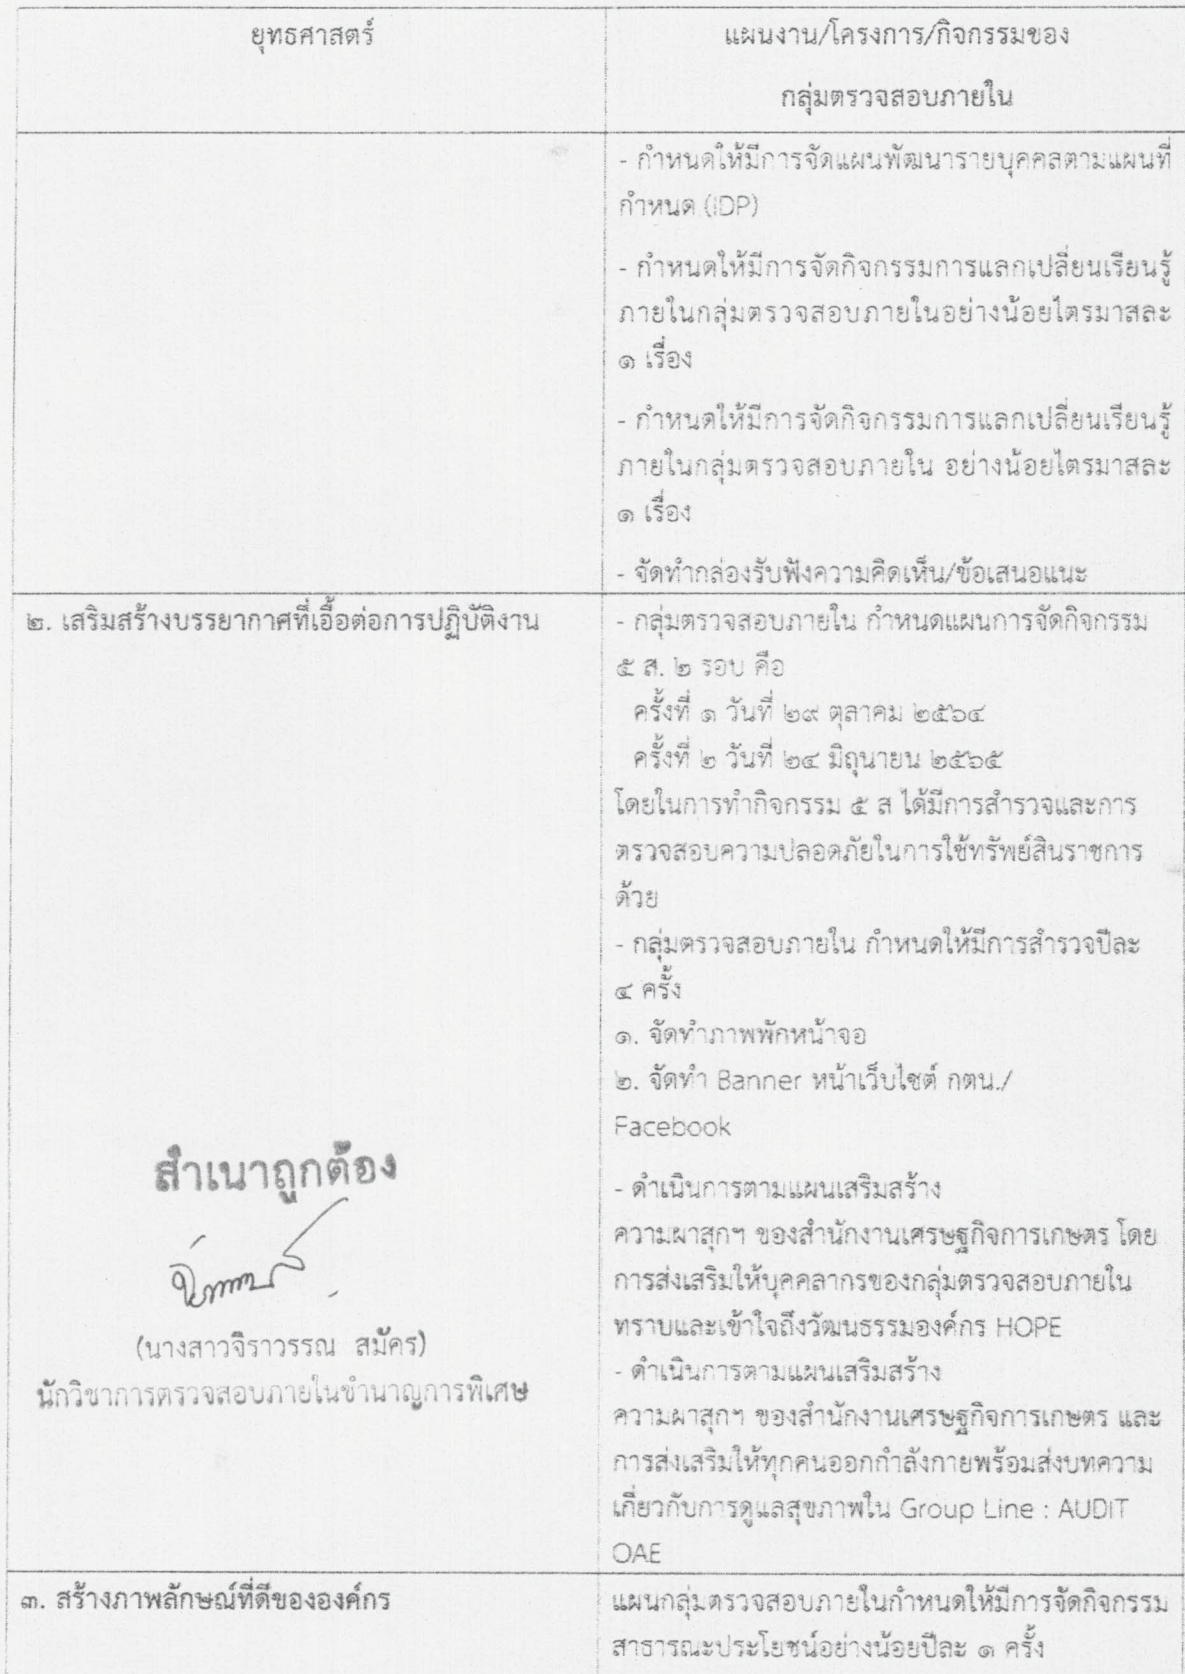 ยุทธศาสตร์
แผนงาน/โครงการ/กิจกรรมของ
กลุ่มตรวจสอบภายใน
- กำหนดให้มีการจัดแผนพัฒนารายบุคคลตามแผนที่
กำหนด (IDP)
- กำหนดให้มีการจัดกิจกรรมการแลกเปลี่ยนเรียนรู้
ภายในกลุ่มตรวจสอบภายในอย่างน้อยไตรมาสละ
๑ เรื่อง
- กำหนดให้มีการจัดกิจกรรมการแลกเปลี่ยนเรียนรู้
ภายในกลุ่มตรวจสอบภายใน อย่างน้อยไตรมาสละ
๑ เรื่อง
- จัดทำกล่องรับฟังความคิดเห็น/ข้อเสนอแนะ
๒. เสริมสร้างบรรยากาศที่เอื้อต่อการปฏิบัติงาน
- กลุ่มตรวจสอบภายใน กำหนดแผนการจัดกิจกรรม
๕ ส. ๒ รอบ คือ
ครั้งที่ ๑ วันที่ ๒๙ ตุลาคม ๒๕๖๔
ครั้งที่ ๒ วันที่ ๒๔ มิถุนายน ๒๕๖๕
โดยในการทำกิจกรรม ๕ ส ได้มีการสำรวจและการ
ตรวจสอบความปลอดภัยในการใช้ทรัพย์สินราชการ
ด้วย
- กลุ่มตรวจสอบภายใน กำหนดให้มีการสำรวจปีละ
๔ ครั้ง
๑. จัดทำภาพพักหน้าจอ
๒. จัดทำ Banner หน้าเว็บไซต์ กตน./
Facebook
- ดำเนินการตามแผนเสริมสร้าง
ความผาสุกฯ ของสำนักงานเศรษฐกิจการเกษตร โดย
การส่งเสริมให้บุคคลากรของกลุ่มตรวจสอบภายใน
ทราบและเข้าใจถึงวัฒนธรรมองค์กร HOPE
- ดำเนินการตามแผนเสริมสร้าง
ความผาสุกฯ ของสำนักงานเศรษฐกิจการเกษตร และ
การส่งเสริมให้ทุกคนออกกำลังกายพร้อมส่งบทความ
เกี่ยวกับการดูแลสุขภาพใน Group Line : AUDIT
OAE
สำเนาถูกต้อง
(นางสาวจิราวรรณ สมัคร)
นักวิชาการตรวจสอบภายในชำนาญการพิเศษ
๓. สร้างภาพลักษณ์ที่ดีขององค์กร
แผนกลุ่มตรวจสอบภายในกำหนดให้มีการจัดกิจกรรม
สาธารณะประโยชน์อย่างน้อยปีละ ๑ ครั้ง